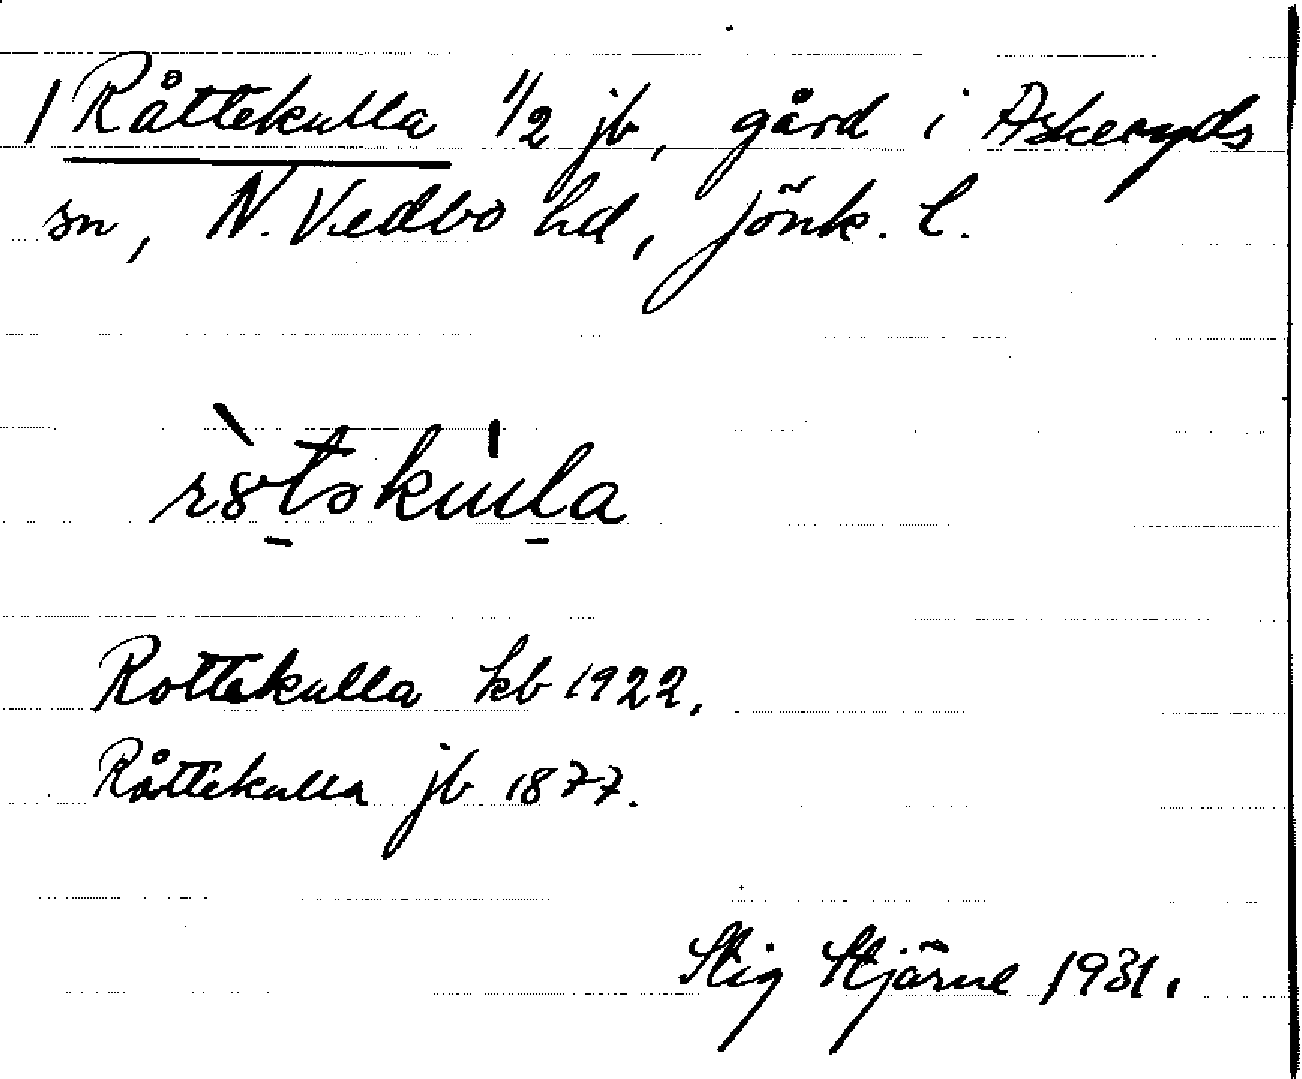 1 Råttekulla 1/2 jb, gård i Askeryds
sn, N. Vedbo hd, Jönk. l.
Rottekulla kb 1922.
Råttekulla jb 1877.
Stig Stjärne 1931.